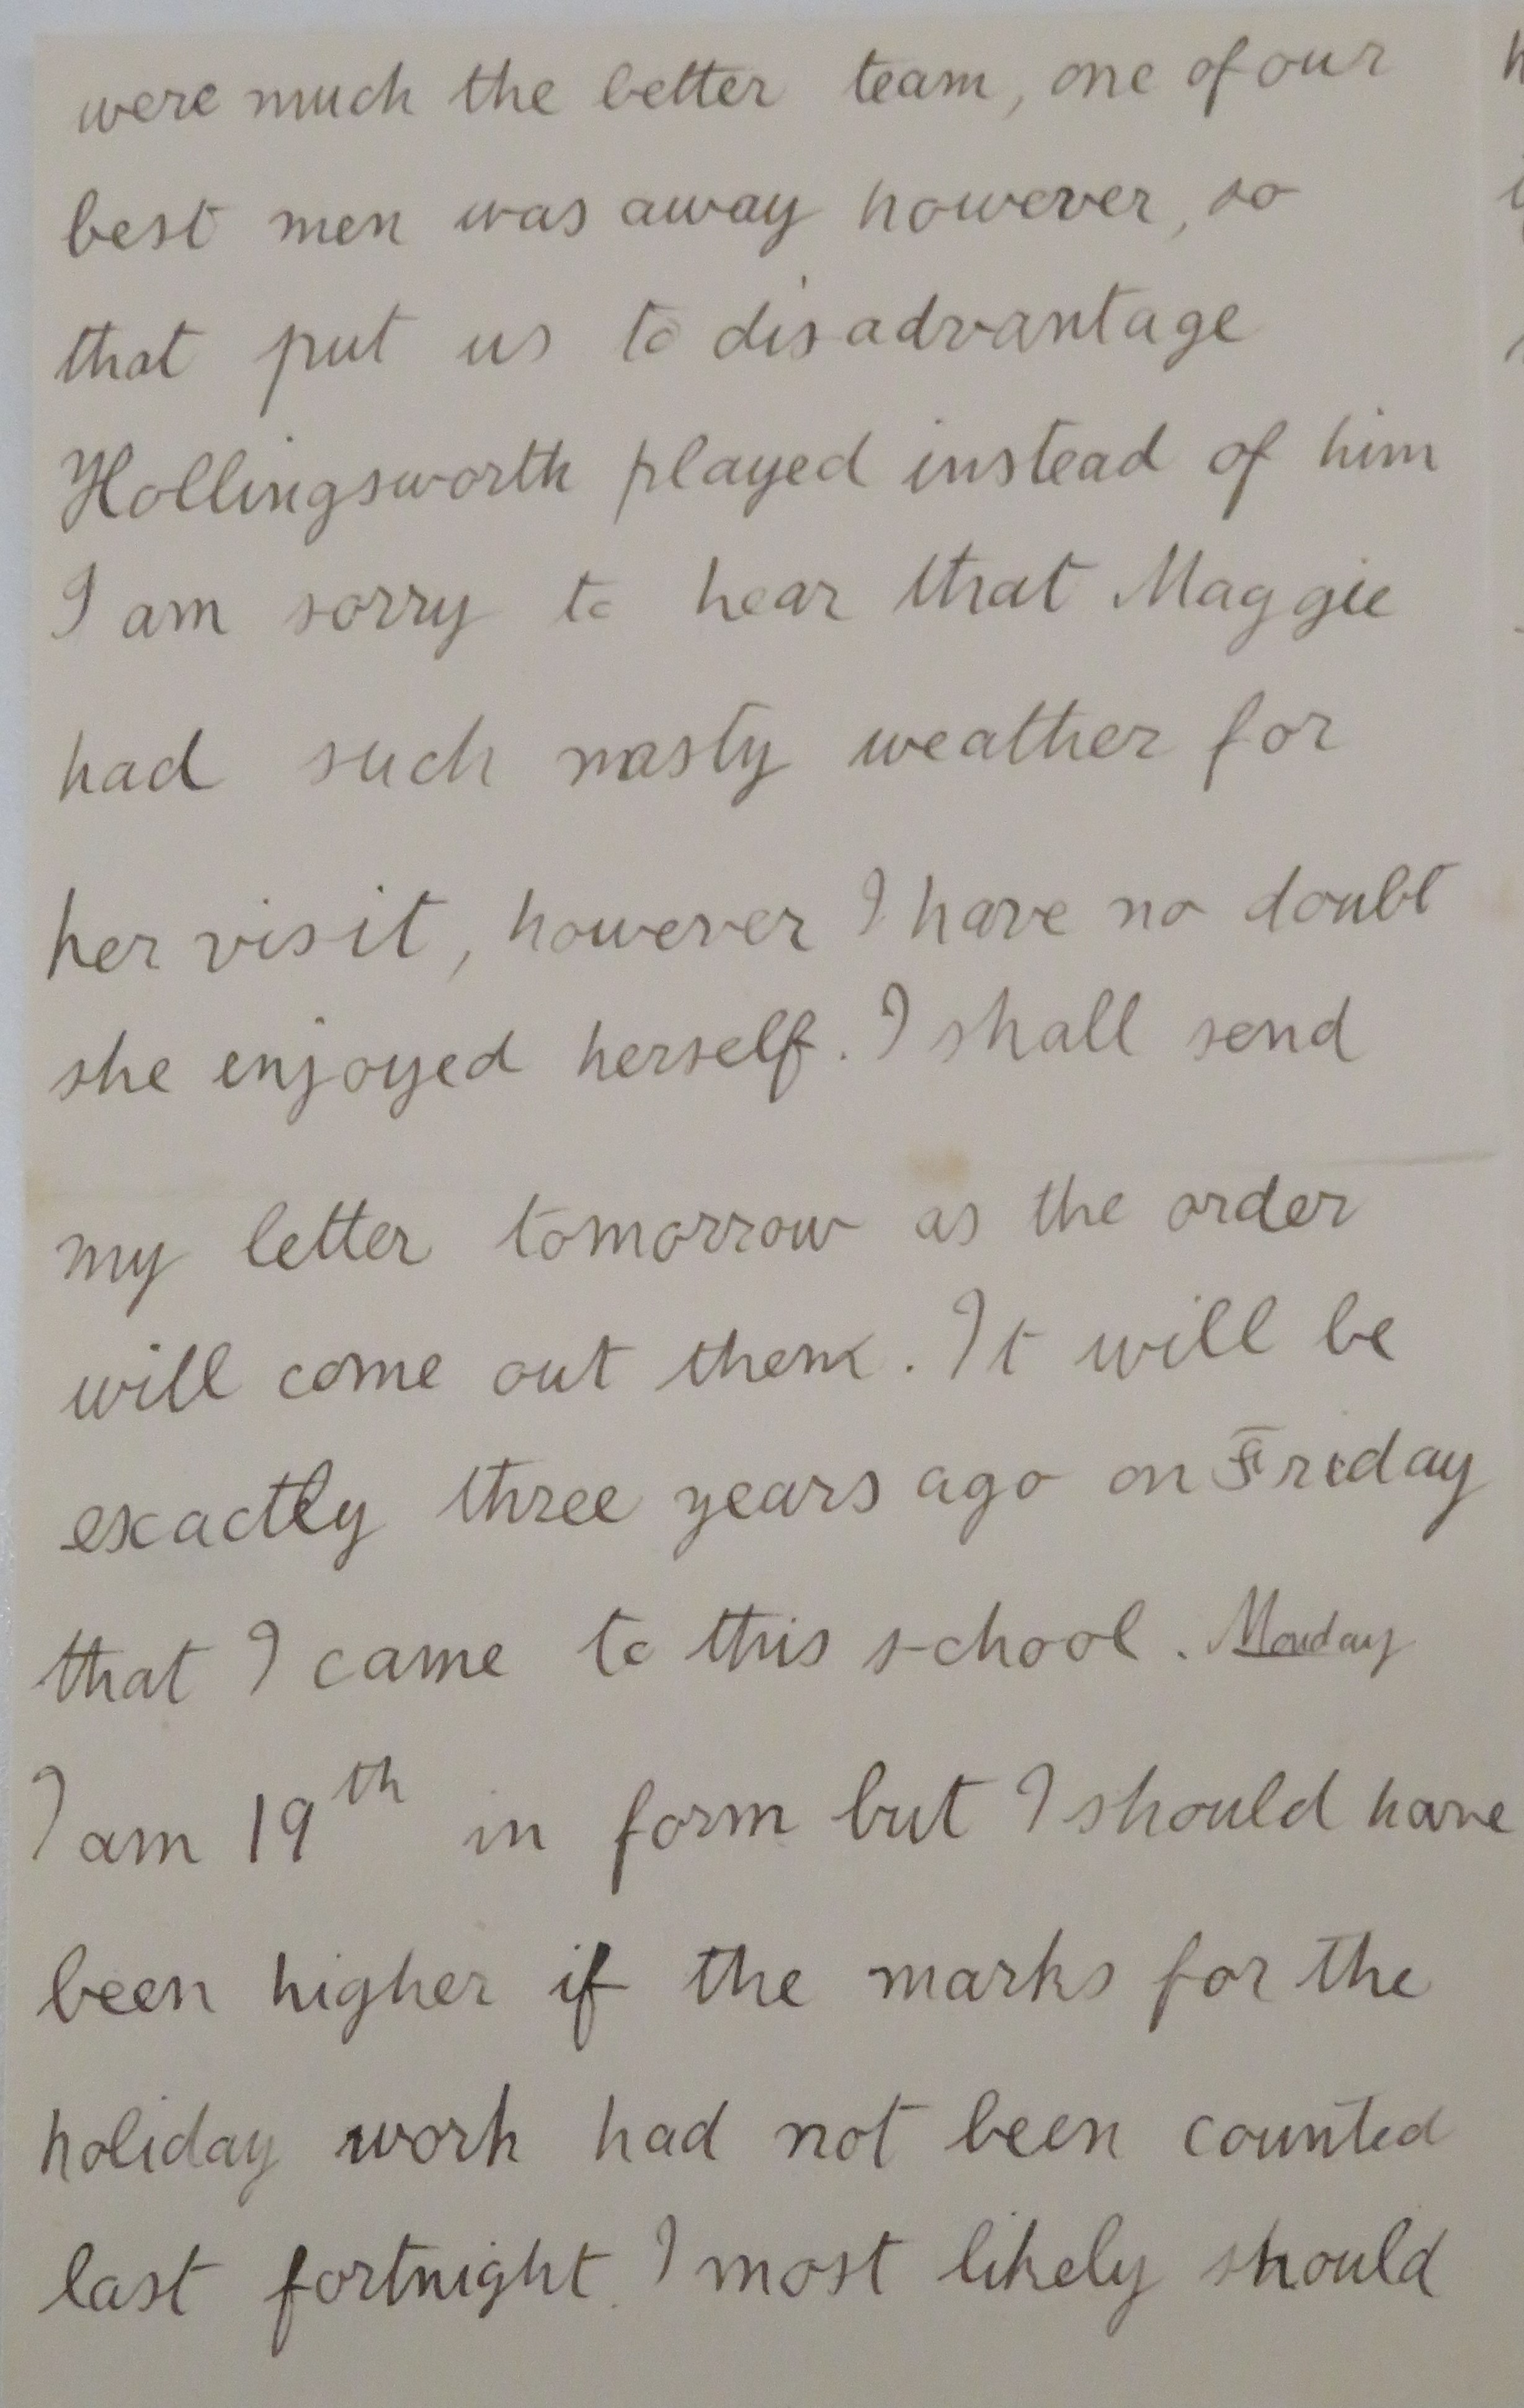 were much the better team, one of our
best men was away however, so
that put us to disadvantage
Hollingsworth played instead of him
I am sorry to hear that Maggie
had such nasty weather for
her visit, however I have no doubt
she enjoyed herself. I shall send
my letter tomorrow as the order
will come out then. It will be
exactly three years ago on Friday
that I came to this school. Monday
I am 19th in form but I should have
been higher if the marks for the
holiday work had not been counted
last fortnight. I most likely should